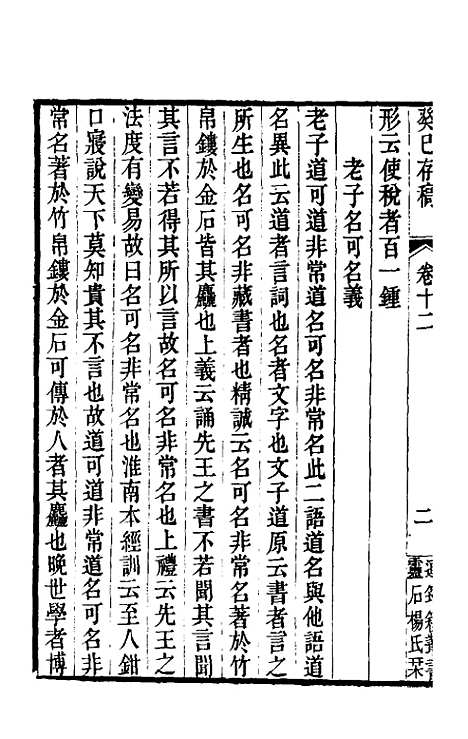 癸巳存稿 卷十二 二 連筠簃叢書
靈石楊氏栞
形云使稅者百一鍾
老子名可名義
老子道可道非常道名可名非常名此二語道名與他語道
名異此云道者言詞也名者文字也文子道原云書者言之
所生也名可名非藏書者也精誠云名可名非常名著於竹
帛鏤於金石皆其麤也上義云誦先王之書不若聞其言聞
其言不若得其所以言故名可名非常名也上禮云先王之
法度有變易故曰名可名非常名也淮南本經訓云至人鉗
口寢說天下莫知貴其不言也故道可道非常道名可名非
常名著於竹帛鏤於金石可傳於人者其麤也晚世學者博